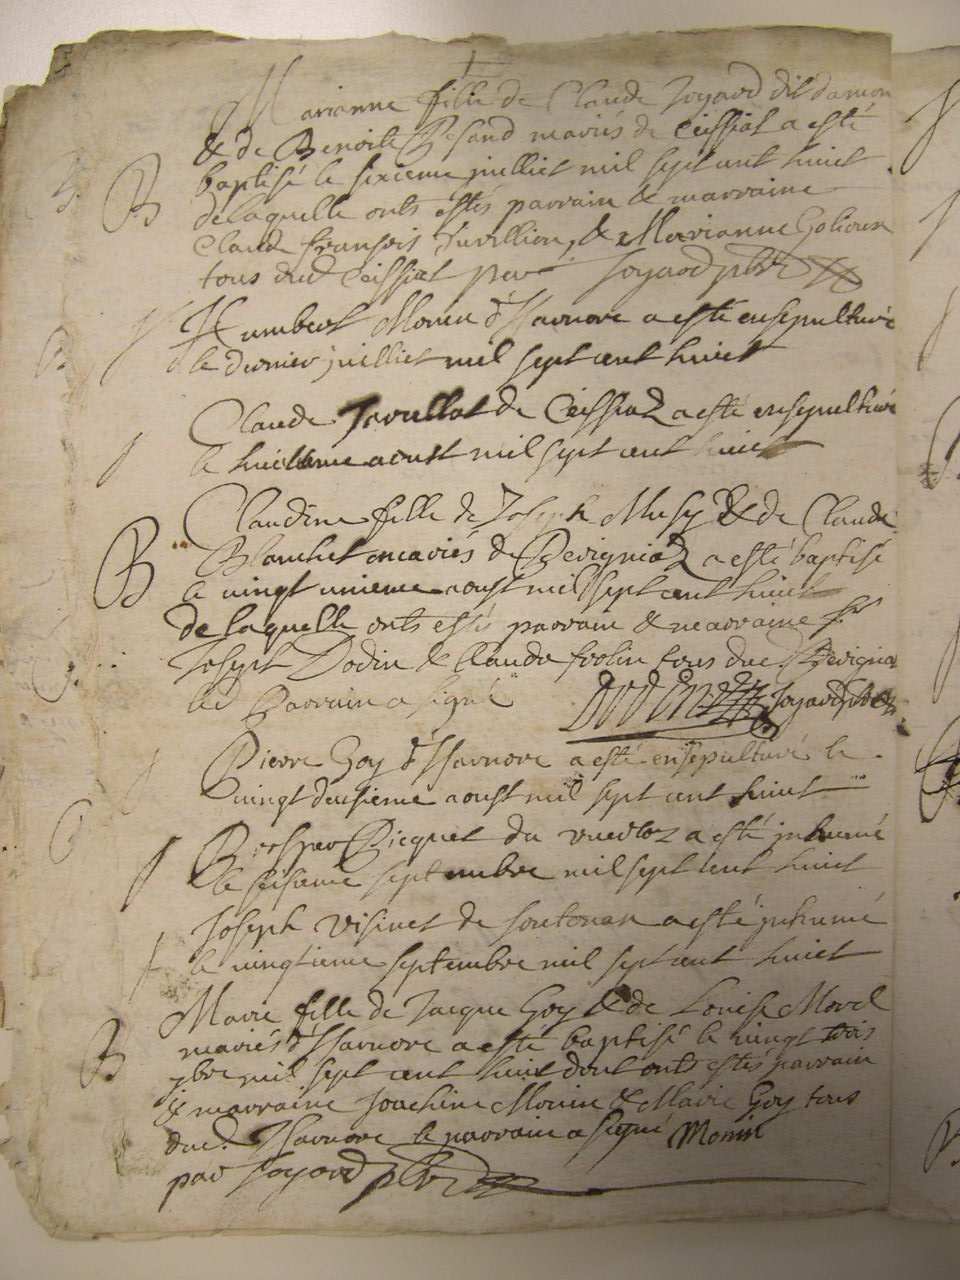 Marianne fille de Claude Joyard dit damon
B & de Benoite Besand mariés de Ceissiat a esté
baptisé le sixieme juilliet mil sept cent huict
de laquelle onts estés parrain & marraine
Claude françois Juvillion & Marianne
tous dud Ceissiat par Joyard pbre
Humbert Monin d'Isarnore a esté ensepulturé
le dernier juilliet mil sept cent huict
Claude de Ceissiat a esté ensepulturé
le huictieme aoust mil sept cent huict
Claudine fille de Joseph Musy & de Claude
B Blanchet mariés de Bevigniat a esté baptisé
le vingt unieme aoust mil sept cent huict
de laquelle onts estés parrain & marraine sr
Joseph Dodin & Claude frolin tous dud Bevignia
led Parrain a signé Dodin Joyard pbre
Pierre Goy d'Isarnore a esté ensepulturé le
vingt deusieme aoust mil sept cent huict
Prosper Picquet du a esté inhumé
le seisieme septembre mil sept cent huict
Joseph Visinet de Soutonan a esté inhumé
le vingtieme septembre mil sept cent huict
Marie fille de Jacque Goy & de Louise Morel
B mariés d'Isarnore a esté baptisé le vingt trois
7bre mil sept cent huict dont onts estés parrain
& marraine Joachim Monin & Marie Goy tous
dud. Isarnore le parrain a signé Monin
par Joyard pbre